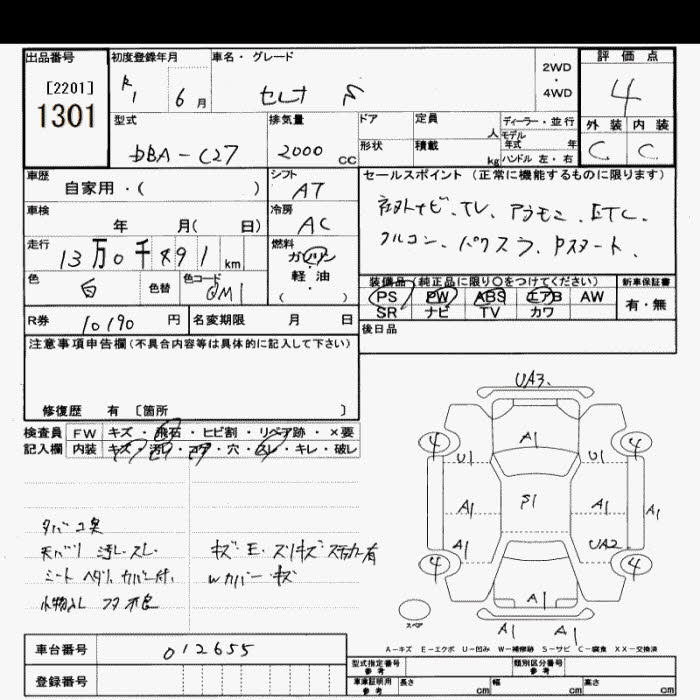 出品番号 初度登録年月 車名・グレード 2WD・4WD 評価点
[2201] R1 6月 セレナ 4
1301 型式 排気量 ドア 定員 人 ディーラー・並行 外装 内装
DBA-C27 2000 CC 形状 積載 kg モデル年式 年 ハンドル 左・右 C C
車歴 自家用・( ) シフト AT セールスポイント(正常に機能するものに限ります)
車検 年 月( 日) 冷房 AC 社外ナビ.TV.アラモニ.ETC.
走行 13万0千891km 燃料 ガソリン・軽・油 ( ) クルコン.パワスラ.Pスタート.
色 白 色替 色コード QM1 装備品(純正品に限り○をつけてください) 新車保証書
PS PW ABS エアB AW 有・無
R券 10190 円 名変期限 月 日 SR ナビ TV カワ
後日品
注意事項申告欄(不具合内容等は具体的に記入して下さい)
修復歴 有 〔箇所 〕
検査員 FW キズ・飛石・ヒビ割・リペア跡・×要
記入欄 内装 キズ・汚レ・コゲ・穴・スレ・キレ・破レ
タバコ臭
天バリ 汚レ.スレ. キズ・E・スリキズ ステッカー有
シート ヘタリ.カバー付. Wカバー・キズ
小物入レ フタ 不良
UA3.
4 A1 4
U1 U1
A1 S1 A1 A1
A1 UA2
4 4
A1
スペア A1 A1
A-キズ E-エクボ U-凹み W-補修跡 S-サビ C-腐食 XX-交換済
車台番号 012655
登録番号
型式指定番号 参考 類別区分番号 参考
車庫証明用 参考 長さ cm 幅 cm 高さ cm